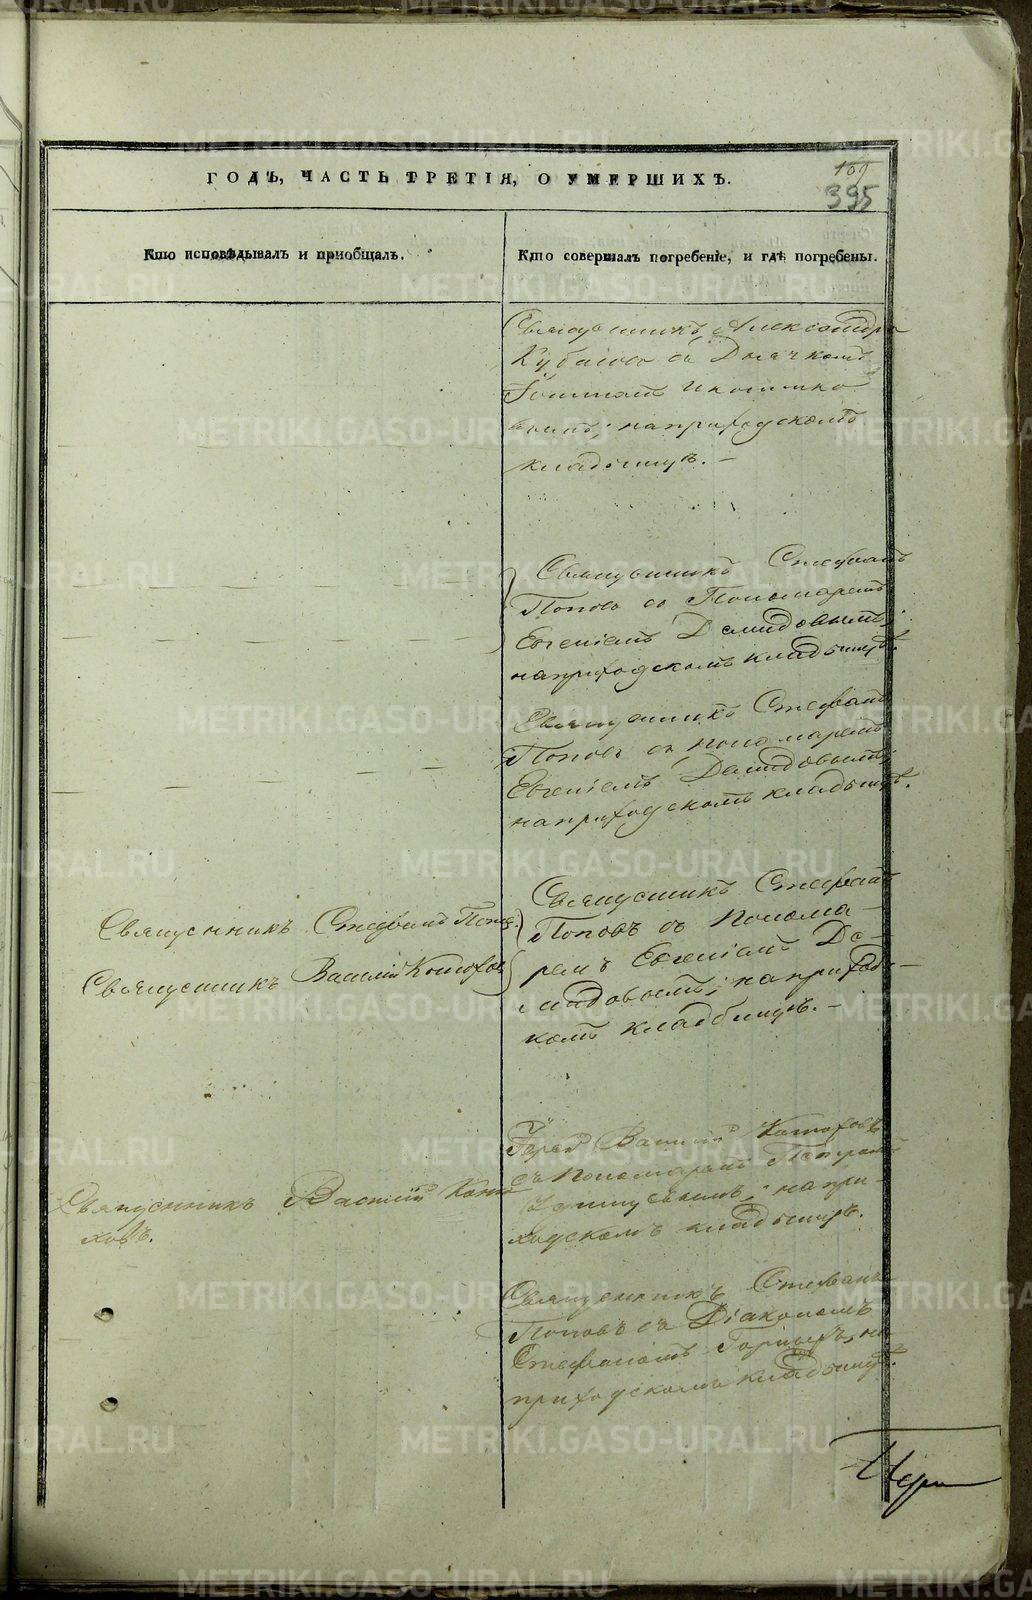 ГОДЪ, ЧАСТЬ ТРЕТІЯ, О УМЕРШИХЪ.
395
Кто исповѣдывалъ и пріобщалъ.
Кто совершалъ погребеніе, и гдѣ погребены.
Священникъ Александръ
съ Дьячкомъ
на приходскомъ
кладбищѣ. —
Священникъ Стефанъ
Поповъ съ Пономаремъ
Евгеніемъ Демидовымъ;
на приходскомъ кладбищѣ.
Священникъ Стефанъ
Поповъ съ пономаремъ
Евгеніемъ Демидовымъ;
на приходскомъ кладбищѣ.
Священникъ Стефанъ
Священникъ Василій
Священникъ Стефанъ
Поповъ съ Понома-
ремъ Евгеніемъ Де-
мидовымъ; на приход-
комъ кладбищѣ. —
Священникъ Василій Коню
ховъ.
Іерей Василій
съ Пономаремъ Петромъ
на при-
ходскомъ кладбищѣ.
Священникъ Стефанъ
Поповъ съ Діакономъ
Стефаномъ на
приходскомъ кладбищѣ.
METRIKI.GASO-URAL.RU